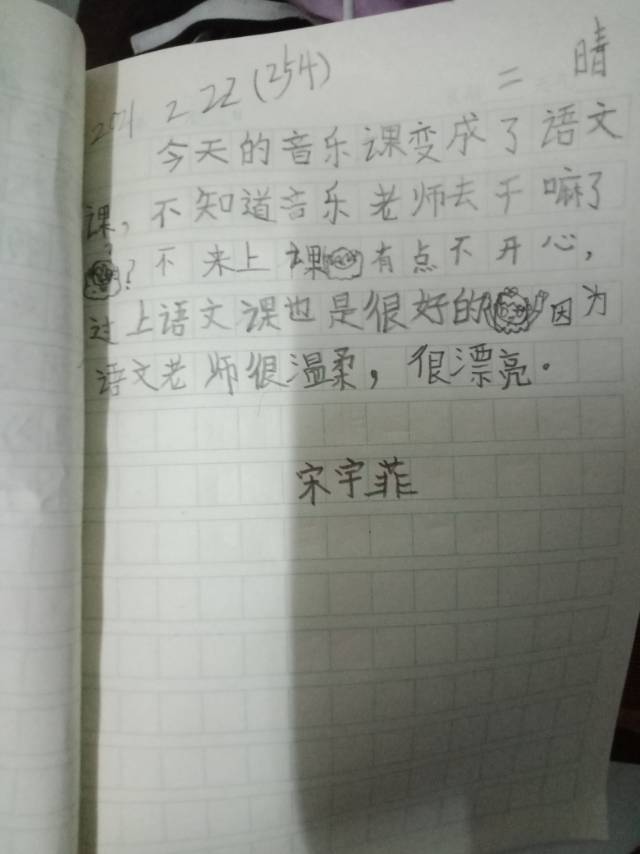 2 22(254) 二 晴
今天的音乐课变成了语文
课,不知道音乐老师去干嘛了
?不来上课有点不开心,
过上语文课也是很好的因为
语文老师很温柔,很漂亮.
宋宇菲